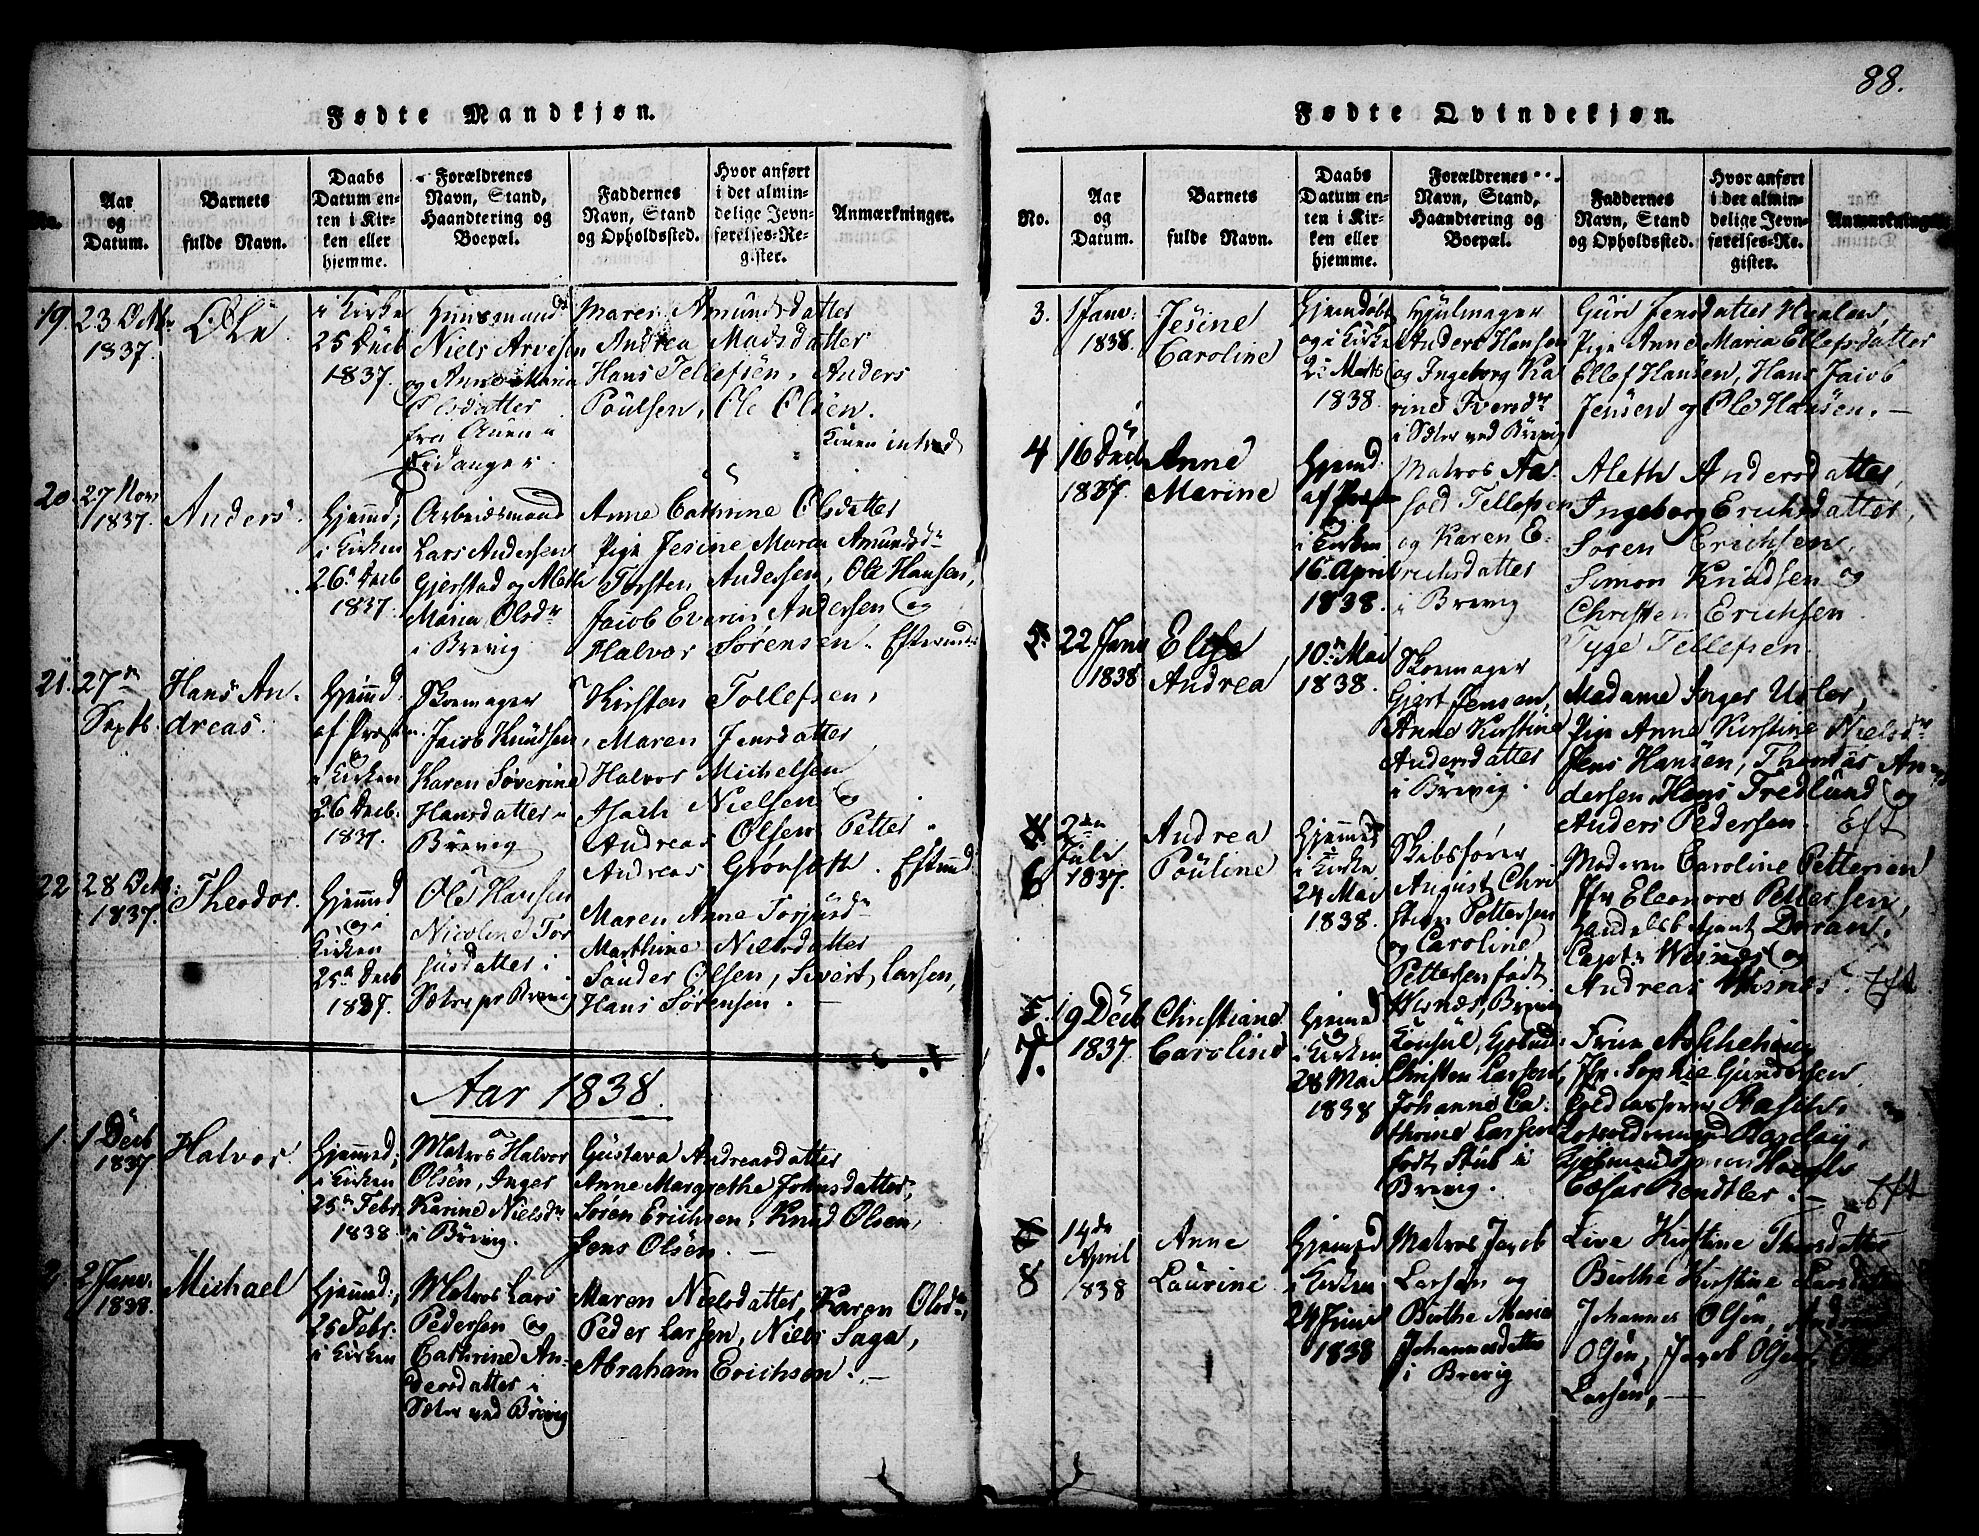 88.
Fødte Mandkjøn.
No.
Aar
og
Datum.
Barnets
fulde Navn.
Daabs
Datum en-
ten i Kir-
ken eller
hjemme.
Forældrenes
Navn, Stand,
Haandtering og
Boepæl.
Faddernes
Navn, Stand
og Opholdssted.
Hvor anført
i det almin-
delige Jevn-
førelses-Re-
gister.
Anmærkninger.
19.
23 Octbr
1837.
Ole
i Kirke
25 Decb
1837.
Huusmand
Niels Arvesen
og Anne Maria
Olsdatter
fra
Eidanger.
Maren Amundsdatter
Andrea Madsdatter
Hans Tellefsen, Anders
Poulsen, Ole Olsen.
20.
27 Nov
1837.
Anders.
Hjemmed;
i Kirken
26 Decb
1837.
Arbeidsmand
Lars Andersen
Gjerstad og Aleth
Maria Olsdr
i Brevig
Anne Cathrine Olsdatter
Pige Jesine Maren Amundsdr
Torsten Andersen, Ole Hansen,
Jacob Everin Andersen og
Halvor Sørensen.
21.
27de
Septb.
Hans An-
dreas.
Hjemmed
af Præsten
i Kirken
26 Decb.
1837.
Skomager
Jacob Knudsen,
Karen Severine
Hansdatter
Brevig
Kirsten Tollefsen,
Maren Jensdatter,
Halvor Michelsen
Isach Nielsen og
Andreas Olsen, Petter
Andreas Grønsett.
22
28 Octb:
1837.
Theodor.
Hjemmed
og i
Kirken
25 Decb
1837.
Ole Hansen
Nicoline Tor
jusdatter i
Sætre pr Brevig
Maren Anne Torjusdr
Marthine Nielsdatter
Sander Olsen, Sivert Larsen,
Hans Sørensen.
Aar 1838.
1
1 Decb
1837
Halvor.
Hjemmed;
i Kirken
25 Febr.
1838.
Matros Halvor
Olsen, Inger
Karine Nielsdr
i Brevig.
Gustava Andreasdatter
Anne Margrethe Johnsdatter,
Søren Erichsen, Knud Olsen,
Jens Olsen.
2
2 Janv.
1838.
Michael
Hjemmed;
25 Febr.
i Kirken
Matros Lars
Pedersen og
Cathrine An-
dersdatter i
Sætre ved Brevig
Maren Nielsdatter, Karen Olsdr,
Peder Larsen, Niels Saga,
Abraham Erichsen.
Fødte Qvindekjøn.
No.
Aar
og
Datum.
Barnets
fulde Navn.
Daabs
Datum en-
ten i Kir-
ken eller
hjemme.
Forældrenes
Navn, Stand,
Haandtering og
Boepæl.
Faddernes
Navn, Stand
og Opholdssted.
Hvor anført
i det almin-
delige Jevn-
førelses-Re-
gister.
Anmærkninger
3.
1 Janv:
1838.
Jesine
Caroline
Hjemdøbt
og i Kirke
Marts
1838.
Hjulmager
Anders Hansen
og Ingeborg Ka
rine Iversdr
i Sætre ved Brevig
Guri Jensdatter
Pige Anne Maria Ellefsdatter
Ellef Hansen, Hans Jacob
Jensen og Ole Hansen.
4
16 Decb
1837.
Anne
Marine
Hjemd.
af Præst
og
i Kirken
16. April
1838.
Matros Aa-
sold Tellefsen
og Karen E-
richsdatter
i Brevig
Aleth Andersdatter,
Ingeborg Erichsdatter,
Søren Erichsen,
Simon Knudsen og
Christen Erichsen
Tyge Tellefsen.
5
22 Janv
1838
Elise
Andrea
10 Mai
1838.
Skomager
Gjert Jensen,
Anne Kirstine
Andersdatter
i Brevig.
Madame Inger Usler,
Pige Anne Kirstine Nielsdr
Jens Hansen, Thomas An-
dersen Hans Fredlund og
Anders Pedersen. Eft
6
2den
Juli
1837.
Andrea
Pouline
Hjemmed
i Kirke
24 Mai
1838.
Skibsfører
August Chri
stian Pettersen
og Caroline
Pettersen født
Wisnes, Brevig
Moderen Caroline Pettersen
Jfr Eleonore Pettersen,
Handelsbetjent Doran,
Capt: Wisnes og
Andreas Wisnes. Eft
7.
19 Decb
1837.
Christiane
Caroline
Hjemmed
i Kirken
28 Mai
1838
Consul,
Christen Larsen,
Johanne Ca-
thrine Larsen
født Stub i
Brevig.
Frue Aschehoug
Jfr. Sophie Gundersen
Eft
8
14de
April
1838
Anne
Laurine
Hjemmed
i Kirken
24 Juni
1838
Matros Jacob
Larsen og
Birthe Marie
Johannesdatter
i Brevig
Live Kirstine Thorsdatter
Birthe Kirstine Larsdatter
Johannes Olsen,
Olsen, Jacob Olsen,
Larsen,